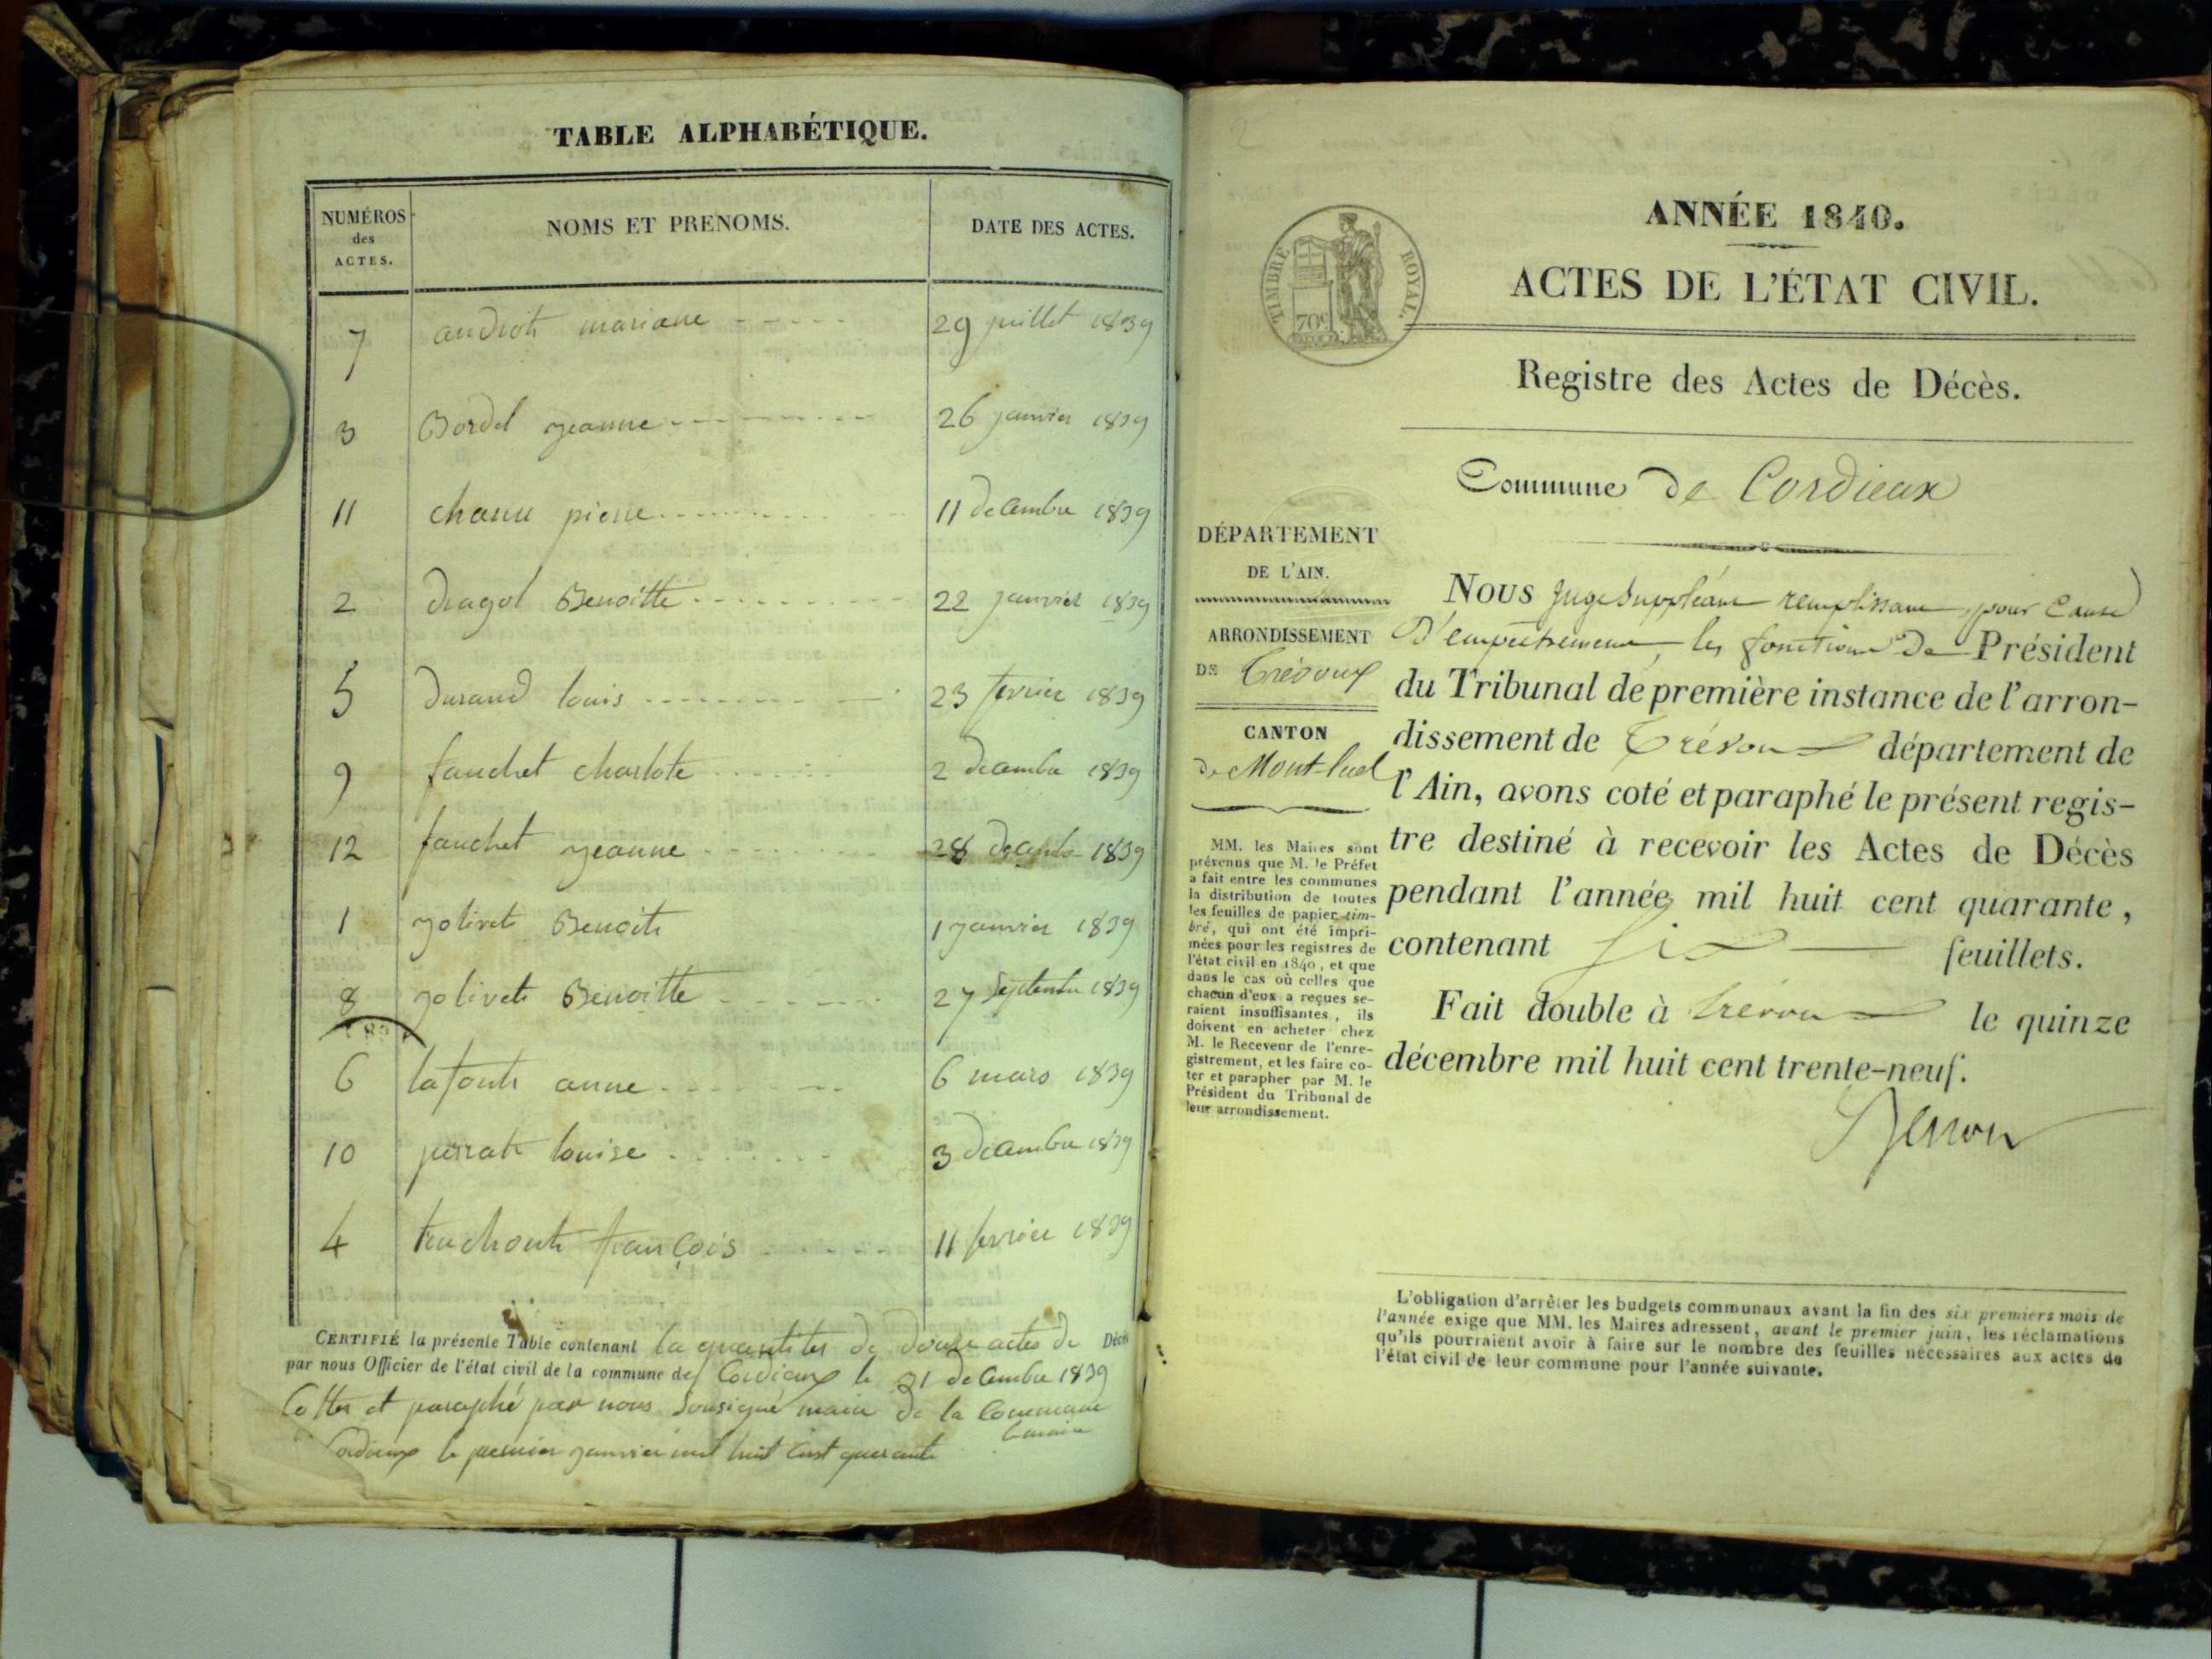 TABLE ALPHABÉTIQUE.
NUMÉROS des ACTES. NOMS ET PRENOMS. DATE DES ACTES.
7 mariane 29 juillet 1839
3 Bordel jeanne 26 janvier 1839
11 chanu pierre 11 decembre 1839
2 dragol Benoitte 22 janvier 1839
5 durand louis 23 fevrier 1839
9 fauchet charlote 2 decembre 1839
12 fauchet jeanne 28 decembre 1839
1 jolivet Benoit 1 janvier 1839
8 jolivet Benoitte 27 Septembre 1839
6 lafont anne 6 mars 1839
10 perrat louise 3 decembre 1839
4 françois 11 fevrier 1839
CERTIFIÉ la présente Table contenant la quantites de douze actes de Décès
par nous Officier de l'état civil de la commune de Cordieux le 31 decembre 1839
Cotter et paraphé par nous Sousigné maire de la Commune
Cordieux le premier janvier mil huit cent quarante
TIMBRE ROYAL.
70c
ANNÉE 1840.
ACTES DE L'ÉTAT CIVIL.
Registre des Actes de Décès.
Commune de Cordieux
DÉPARTEMENT
DE L'AIN.
ARRONDISSEMENT
DE Trévoux
CANTON
de Mont-luel
MM. les Maires sont
prévenus que M. le Préfet
a fait entre les communes
la distribution de toutes
les feuilles de papier tim-
bré, qui ont été impri-
mées pour les registres de
l'état civil en 1840, et que
dans le cas où celles que
chacun d'eux a reçues se-
raient insuffisantes, ils
doivent en acheter chez
M. le Receveur de l'enre-
gistrement, et les faire co-
ter et parapher par M. le
Président du Tribunal de
leur arrondissement.
NOUS Juge Suppléant remplissant, pour Cause
D'empêchement, les fonctions de Président
du Tribunal de première instance de l'arron-
dissement de Trévoux département de
l'Ain, avons coté et paraphé le présent regis-
tre destiné à recevoir les Actes de Décès
pendant l'année mil huit cent quarante,
contenant Six feuillets.
Fait double à Trévoux le quinze
décembre mil huit cent trente-neuf.
L'obligation d'arrêter les budgets communaux avant la fin des six premiers mois de
l'année exige que MM. les Maires adressent, avant le premier juin, les réclamations
qu'ils pourraient avoir à faire sur le nombre des feuilles nécessaires aux actes de
l'état civil de leur commune pour l'année suivante.